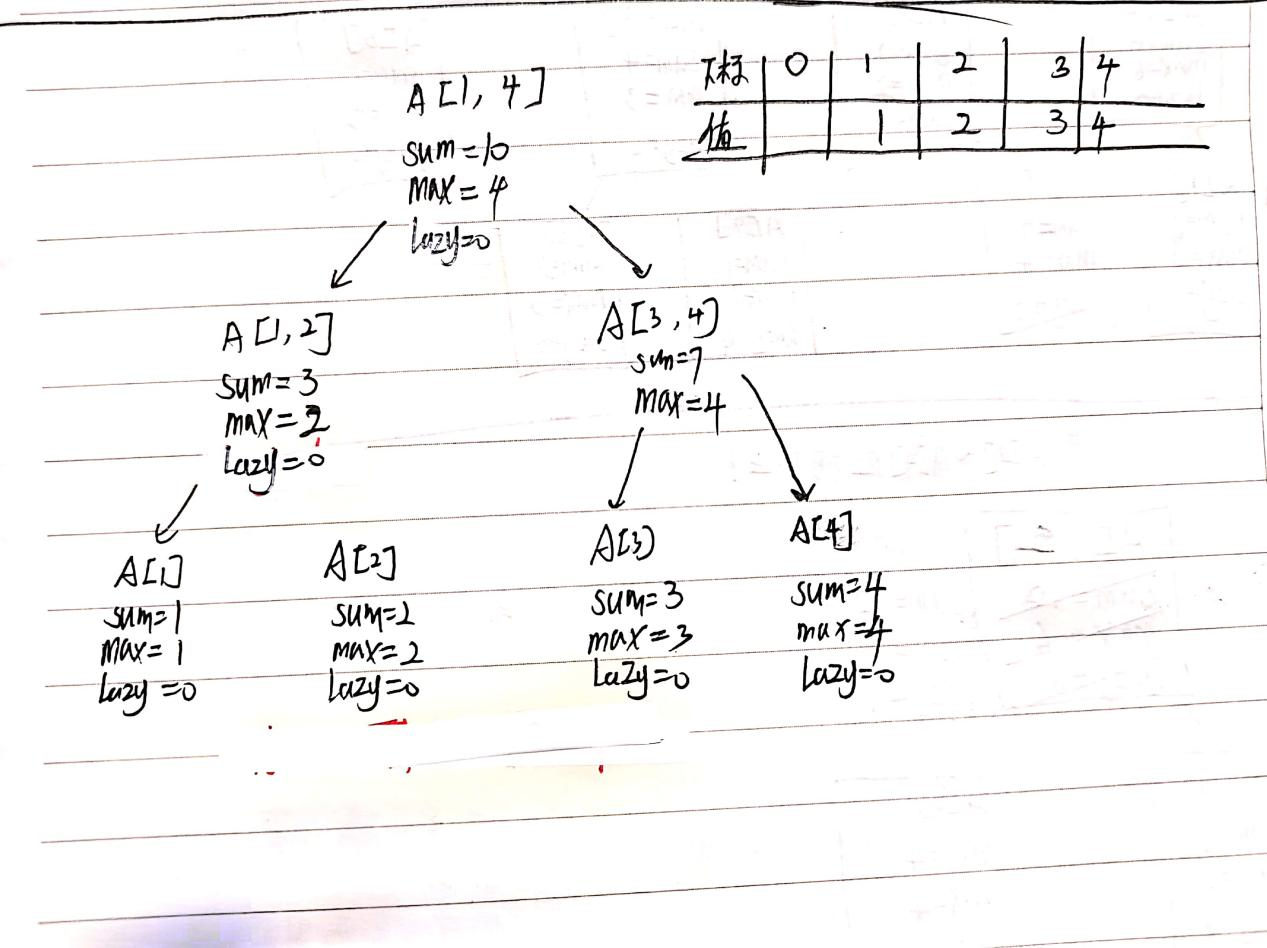 下标 0 1 2 3 4
值 1 2 3 4
A[1, 4]
sum=10
max=4
lazy=0
A[1,2]
sum=3
max=2
lazy=0
A[3,4]
sum=7
max=4
A[1]
sum=1
max=1
lazy=0
A[2]
sum=2
max=2
lazy=0
A[3]
sum=3
max=3
lazy=0
A[4]
sum=4
max=4
lazy=0